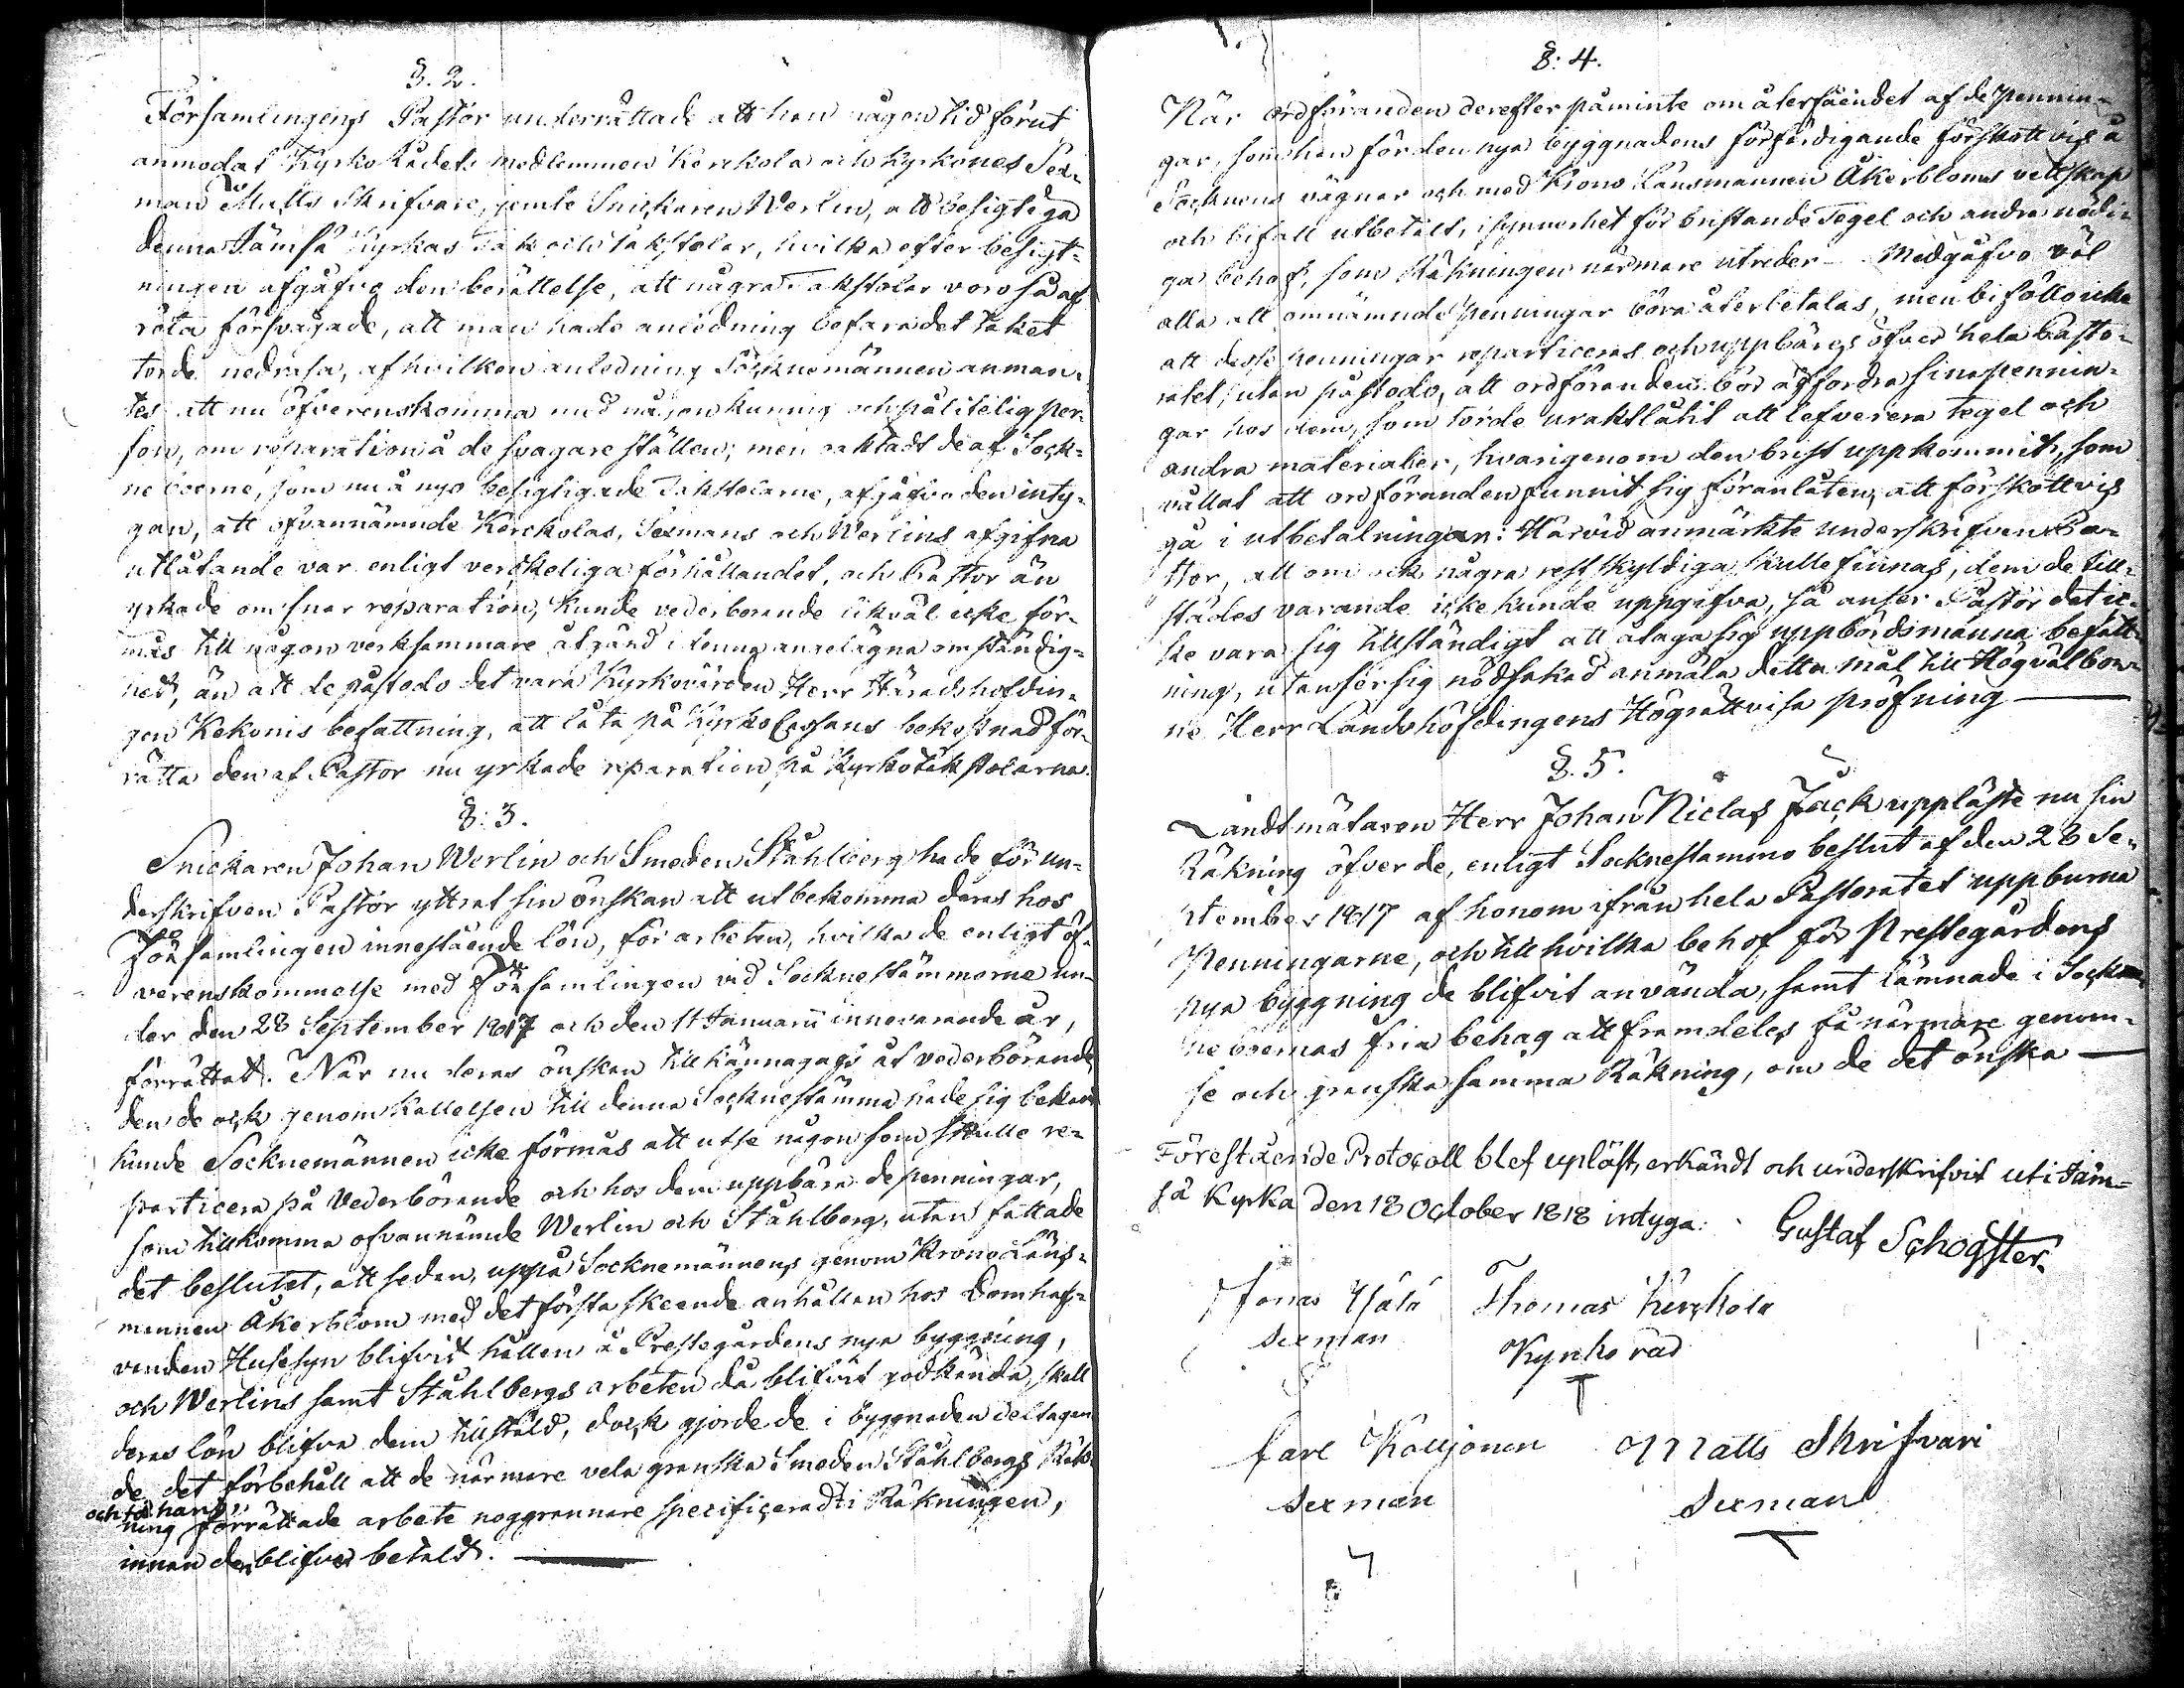 §. 2.
Församlingens Pastor underrättade att han någon tid förut
anmodat Kyrko Rådets medlemmen Kerckola och Kyrkones Sex-
man Matts Skrifvare, jemte Snickaren Werlin, att besigtiga
denna Jämsä Kyrkas Tak och takstolar, hvilka efter besigt-
ningen afgåfvo den berättelse, att några Takstolar voro så af
röta försvagade, att man hade anledning befara det taket
torde nedrasa, af hvilken anledning Socknemännen anman-
tes att nu öfverenskomma med någon kunnig och pålitelig per-
son, om reparation å de svagare ställen; men oaktadt de af Sock-
neboerne, som nu å nyo besigtigade Takstolarne, afgåfvo den inty-
gan, att ofvannämnde Kerckolas, Sexmans och Werlins afgifna
utlåtande var enligt verckeliga förhållandet, och Pastor än
yrkade om snar reparation, kunde vederborande likväl icke för-
mås till någon verksammare åtgärd i denna angelägna omständig-
het, än att de påstodo det vara Kyrkovärden Herr Häradshöfdin-
gen Kekonis befattning, att låta på KyrkoCassans bekostnad för-
rätta den af Pastor nu yrkade reparation på Kyrkotakstolarna.
§: 3.
Snickaren Johan Werlin och Smeden Ståhlberg hade för un-
derskrifven Pastor yttrat sin önskan att utbekomma deras hos
Församlingen innestående lön, för arbeten, hvilka de enligt öf-
verenskommelse med Församlingen vid Socknestämmorne un-
der den 28 September 1817 och den 11 Januarii innevarande år,
förrättat. När nu deras önskan tillkännagafs åt vederbörande,
den de ock genom Kallelsen till denna Socknestämma hade sig bekant
kunde Socknemännen icke förmås att utse någon som skulle re-
particera på Vederbörande och hos dem uppbära de penningar,
som tillkomma ofvannämde Werlin och Ståhlberg, utan fattade
det beslutet, att sedan, uppå Socknemännens genom Krono Läns-
mannen Åkerblom med det första skeende anhållan hos Domhaf-
vanden Husesyn blifvit hållen å Prestegårdens nya byggning,
och Werlins samt Ståhlbergs arbeten då blifvit godkända, skall
deras lön blifva dem tillstäld, dock gjorde de i byggnaden deltagan
de det förbehåll att de närmare vela granska Smeden Ståhlbergs Räk-
och få hans
ning förrättade arbete noggrannare specificeradt i Räkningen,
innan den blifver betald.
§: 4.
När ordföranden derefter påminte om återfåendet af de pennin-
gar, som han för den nya byggnadens förfärdigande förskottvis å
Socknens vägnar och med Krono Länsmannen Åkerbloms vettskap
och bifall utbetalt, i synnerhet för bristande Tegel och andra nödi-
ga behof, som Räkningen närmare utreder. Medgåfvo väl
alla att omnämnde penningar böra återbetalas, men biföllo icke
att desse penningar reparticeras och uppbäres öfver hela Pasto-
ratet, utan påstodo, att ordföranden bör affordra sina pennin-
gar hos dem, som torde uraktlåtit att lefverera tegel och
andra materialier, hvarigenom den brist uppkommit, som
vållat att ordföranden funnit sig föranlåten, att förskottvis
gå i utbetalningar. Härvid anmärkte underskrifven Pa-
stor, att om ock några restskyldiga skulle finnas, dem de till-
städes varande icke kunde uppgifva, så anser Pastor det ic-
ke vara sig tillständigt att åtaga sig uppbördsmanna befatt-
ning, utan ser sig nödsakad anmäla detta mål till Högvälbor-
ne Herr Landshöfdingens Högrättvisa pröfning
§. 5.
Landtmätaren Herr Johan Niclas Jack uppläste nu sin
Räkning öfver de, enligt Socknestämmo beslut af den 28 Se-
ptember 1817 af honom ifrån hela Pastoratet uppburna
Penningarne, och till hvilka behof för Prestegårdens
nya byggning de blifvit använda, samt lämnade i Sock-
neboernas fria behag att framdeles få närmare genom-
se och granska samma Räkning, om de det önska
Förestående Protocoll blef upläst, erkändt och underskrifvit uti Jäm-
sä Kyrka den 18 October 1818 intyga:
Gustaf Schogster.
Jonas Thomas Kerckola
Sexman Kyrko råd
Carl Matts Skrifvari
Sexman Sexman